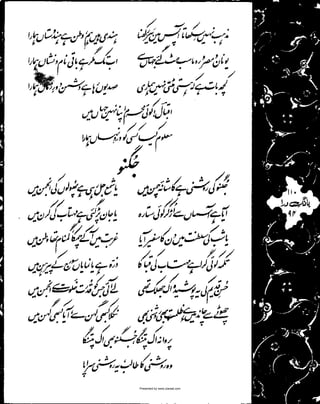 مذہب نہیں سکھاتا آپس میں بیر رکھنا ہندی ہیں ہم، وطن ہے ہندوستاں ہمارا
یونان و مصر و روما سب مٹ گئے جہاں سے اب تک مگر ہے باقی نام و نشاں ہمارا
کچھ بات ہے کہ ہستی مٹتی نہیں ہماری صدیوں رہا ہے دشمن دورِ زماں ہمارا
اقبال! کوئی محرم اپنا نہیں جہاں میں
معلوم کیا کسی کو دردِ نہاں ہمارا
جگنو
جگنو کی روشنی ہے کاشانۂ چمن میں یا شمع جل رہی ہے پھولوں کی انجمن میں
آیا ہے آسماں سے اڑ کر کوئی ستارہ یا جان پڑ گئی ہے مہتاب کی کرن میں
یا شب کی سلطنت میں دن کا سفیر آیا غربت میں آ کے چمکا، گمنام تھا وطن میں
تکمہ کوئی گرا ہے مہتاب کی قبا کا ذرہ ہے یا نمایاں سورج کے پیرہن میں
حسنِ قدیم کی یہ پوشیدہ اک جھلک تھی لے آئی جس کو قدرت خلوت سے انجمن میں
چھوٹے سے چاند میں ہے ظلمت بھی روشنی بھی نکلا کبھی گہن سے، آیا کبھی گہن میں
پروانہ اک پتنگا، جگنو بھی اک پتنگا
وہ روشنی کا طالب، یہ روشنی سراپا
۱۱۰
بانگِ درا
۹۴